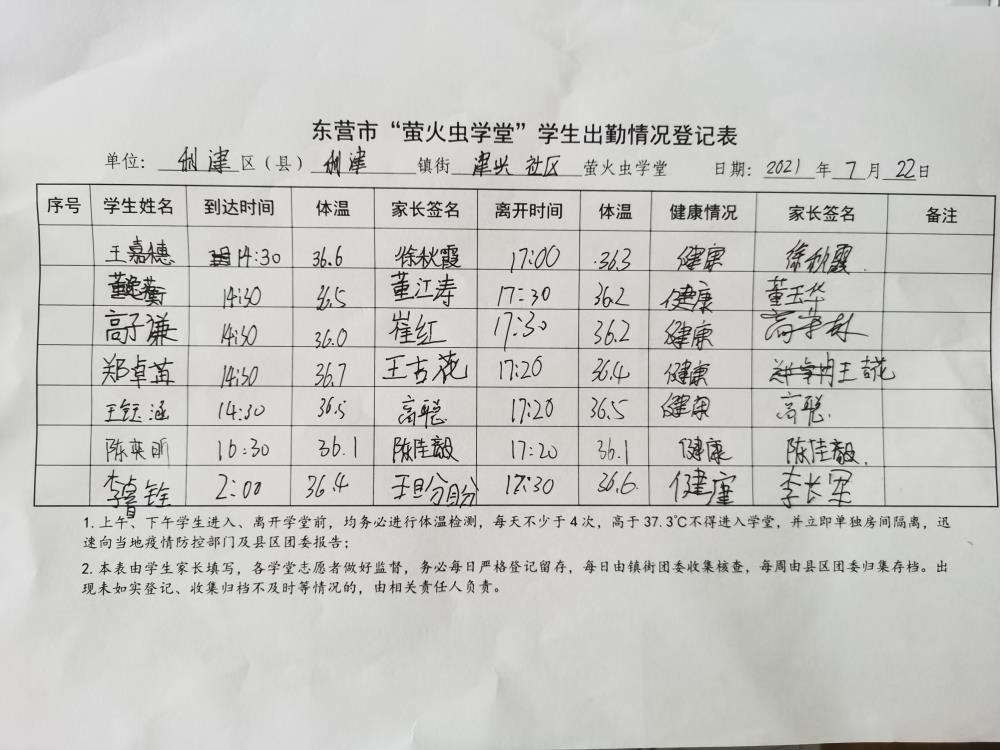 东营市“萤火虫学堂”学生出勤情况登记表
单位：利津区（县）利津镇街 津兴社区 萤火虫学堂 日期：2021年7月22日
序号 学生姓名 到达时间 体温 家长签名 离开时间 体温 健康情况 家长签名 备注
王嘉穗 14:30 36.6 徐秋霞 17:00 36.3 健康 徐秋霞
14:30 36.5 董江涛 17:30 36.2 健康 董玉华
高子谦 14:30 36.0 崔红 17:30 36.2 健康
郑卓苒 14:30 36.7 王吉花 17:20 36.4 健康 王吉花
王钰涵 14:30 36.5 高聪 17:20 36.5 健康 高聪
陈奕昕 16:30 36.1 陈佳毅 17:20 36.1 健康 陈佳毅
李睿铨 2:00 36.4 17:30 36.6 健康 李长军
1. 上午、下午学生进入、离开学堂前，均务必进行体温检测，每天不少于4次，高于37.3℃不得进入学堂，并立即单独房间隔离，迅
速向当地疫情防控部门及县区团委报告；
2. 本表由学生家长填写，各学堂志愿者做好监督，务必每日严格登记留存，每日由镇街团委收集核查，每周由县区团委归集存档。出
现未如实登记、收集归档不及时等情况的，由相关责任人负责。